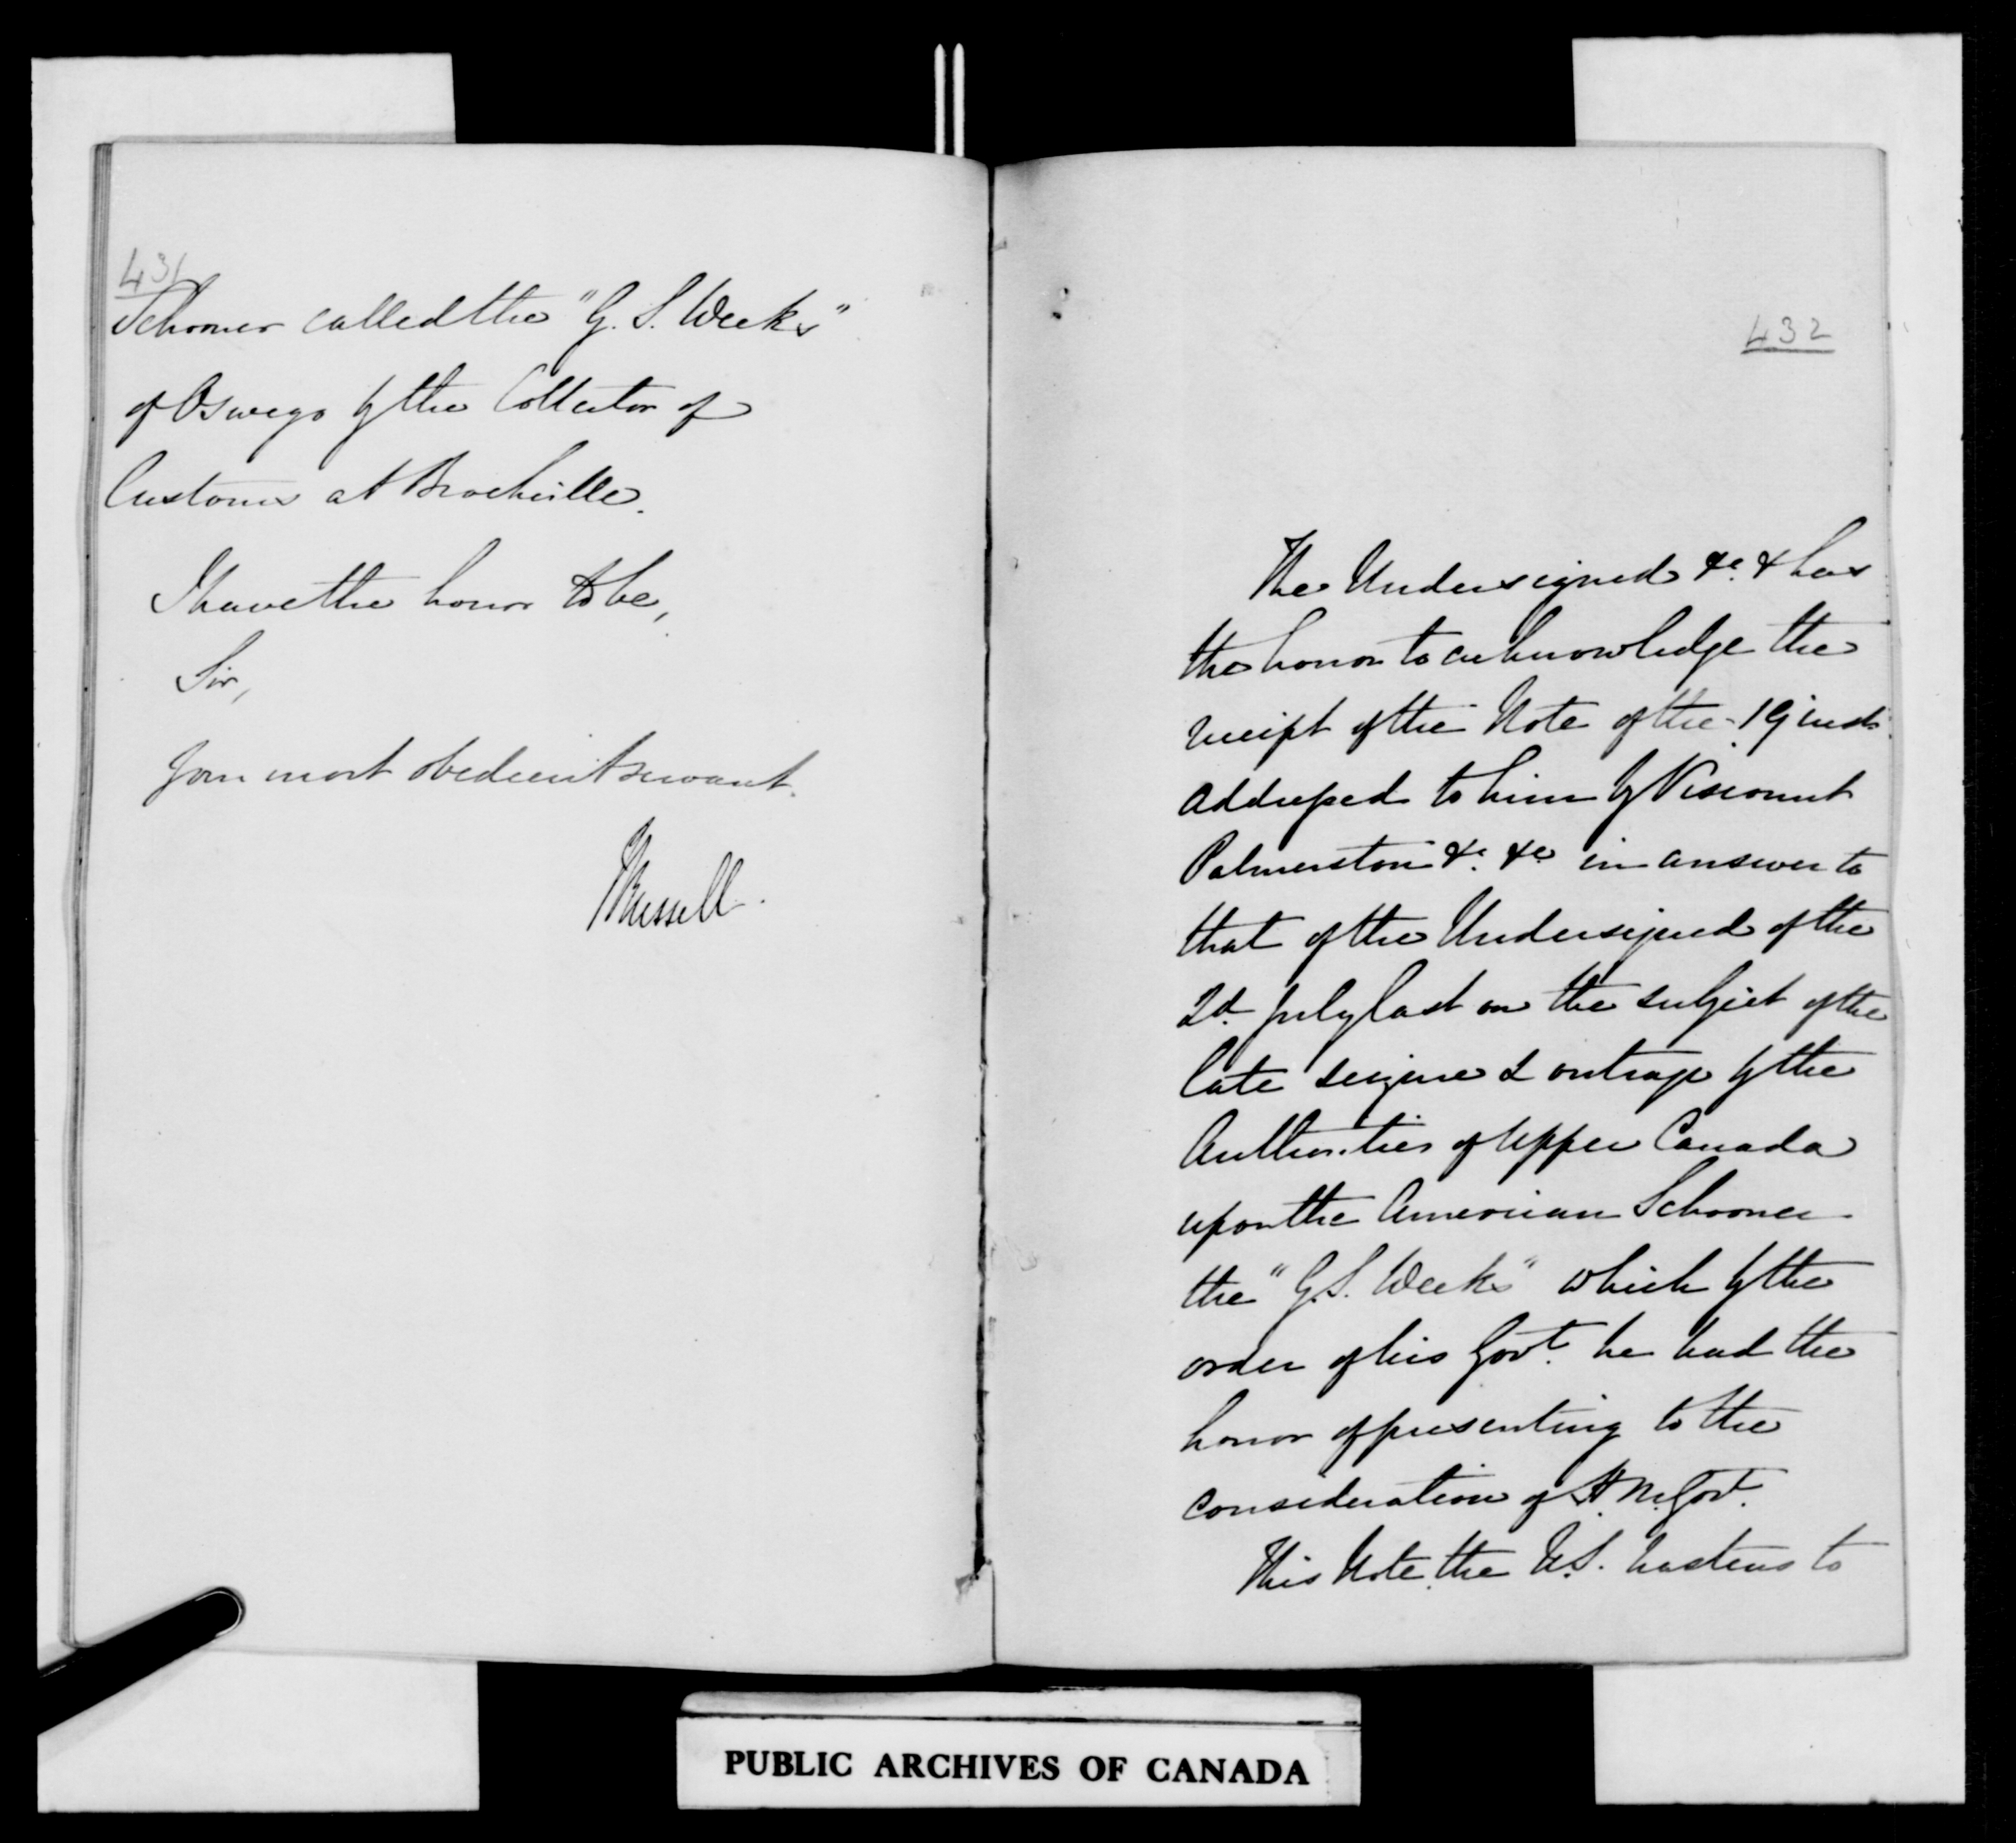 431
Schooner called the "G. S. Weeks"
of Oswego by the Collector of
Customs at Brockville.
I have the honor to be,
Sir,
Your most obedient servant.
J Russell.
432
The Undersigned &c. & has
the honor to acknowledge the
receipt of the Note of the 19 inst.
addressed to him by Viscount
Palmerston &c. &c in answer to
that of the Undersigned of the
2d. July last on the subject of the
late seizure & outrage by the
Authorities of Upper Canada
upon the American Schooner
the "G.S. Weeks" which by the
order of his Govt. he had the
honor of presenting to the
consideration of H. M. Govt.
This Note the U.S. hastens to
PUBLIC ARCHIVES OF CANADA